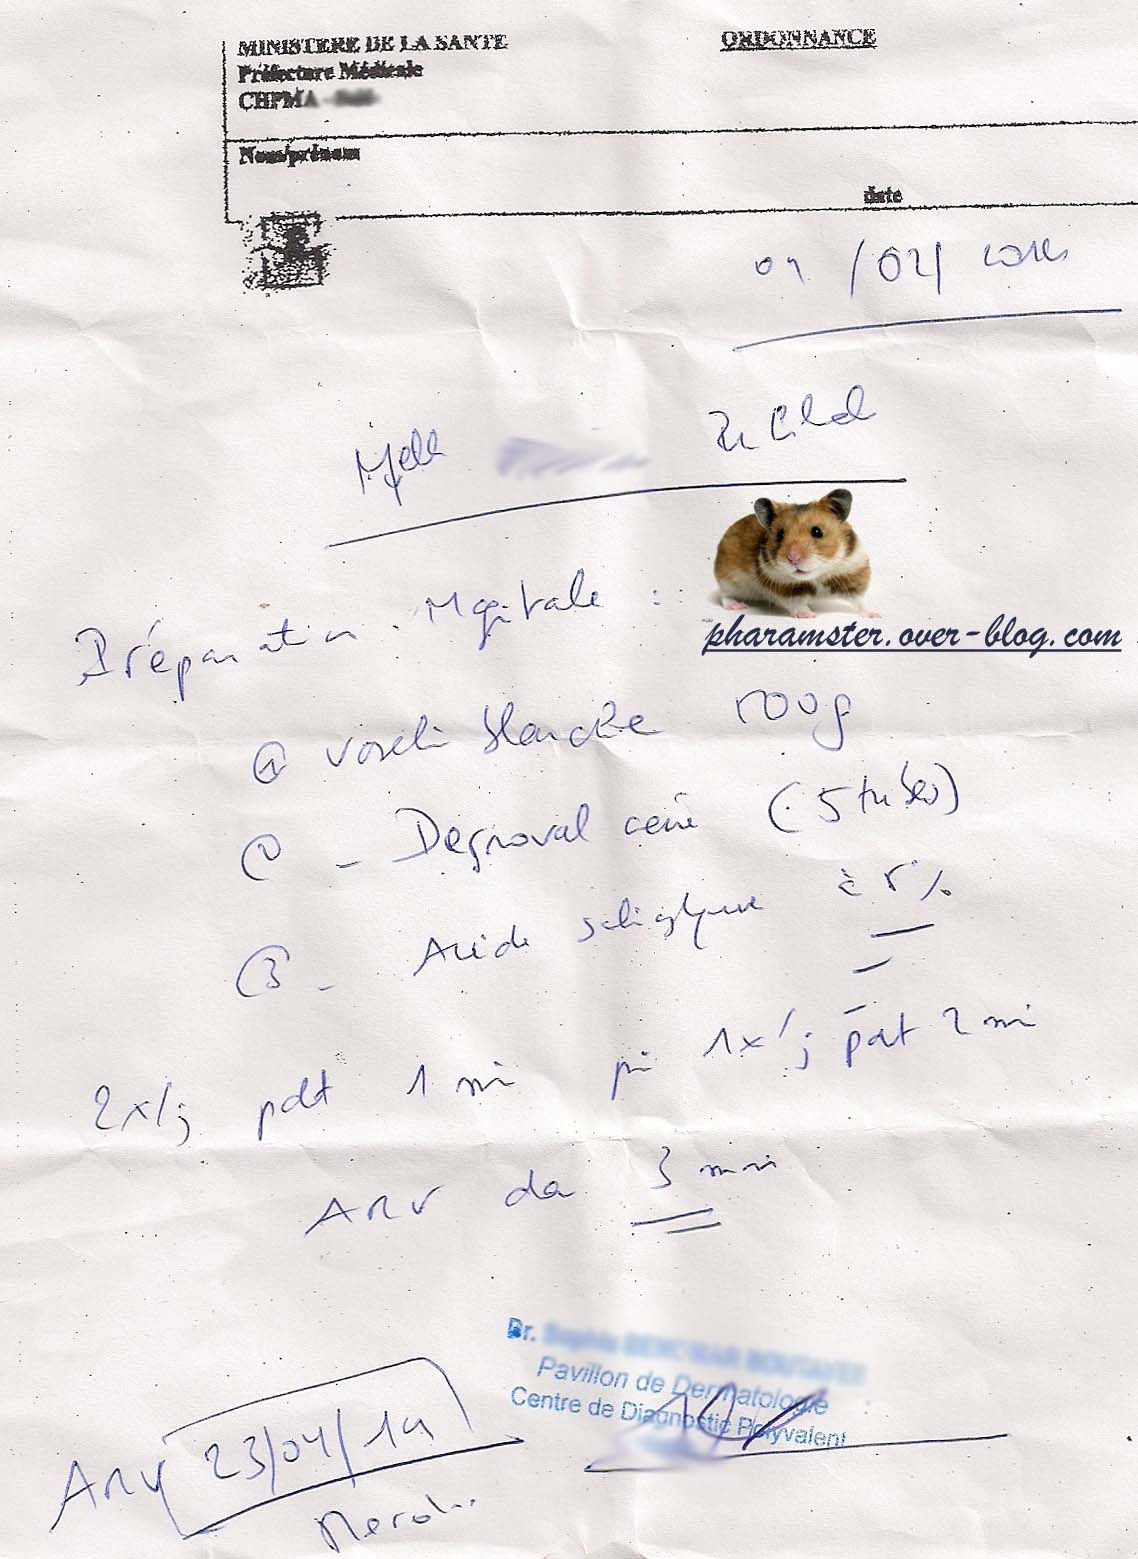 MINISTERE DE LA SANTE
ORDONNANCE
Préfecture Médicale
CHPMA
Nom/prénom
date
/02/
Melle
pharamster.over-blog.com
Préparation Magistrale :
① vaseline blanche 100g
② - Dermoval crème (5 tubes)
③ - Acide salicylique à 5%
2x/j pdt 1 mois puis 1x/j pdt 2 mois
ARV dans 3 mois
Dr.
Pavillon de Dermatologie
Centre de Diagnostic Polyvalent
ARV 23/04/14